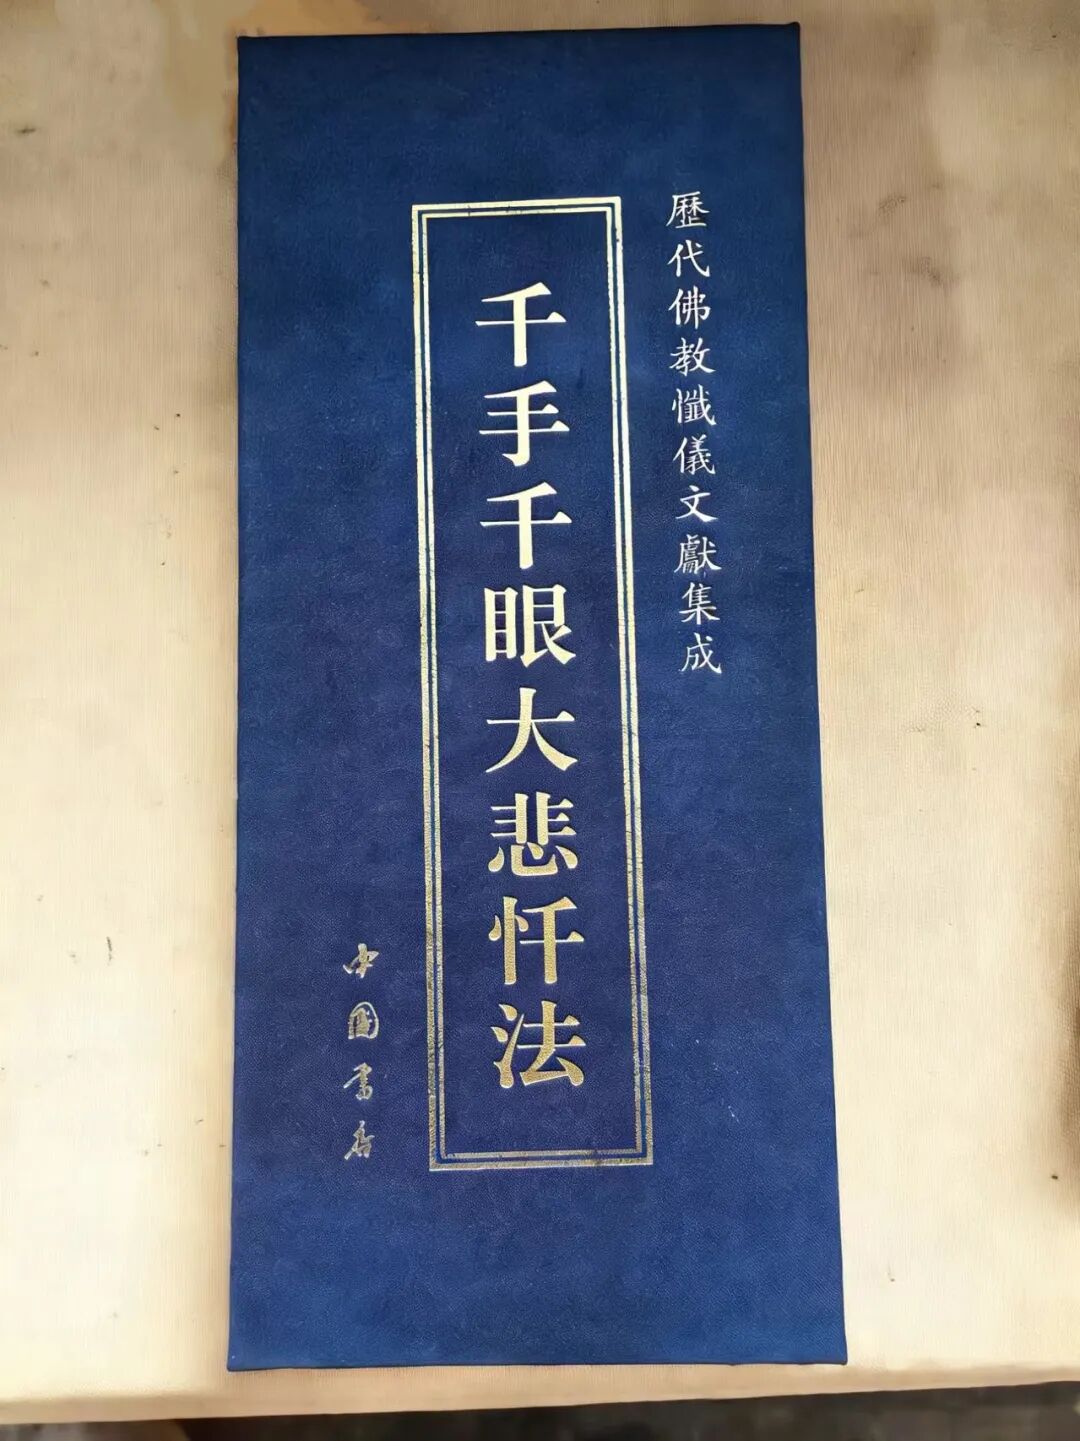 歷代佛教懺儀文獻集成
千手千眼大悲忏法
中國書店